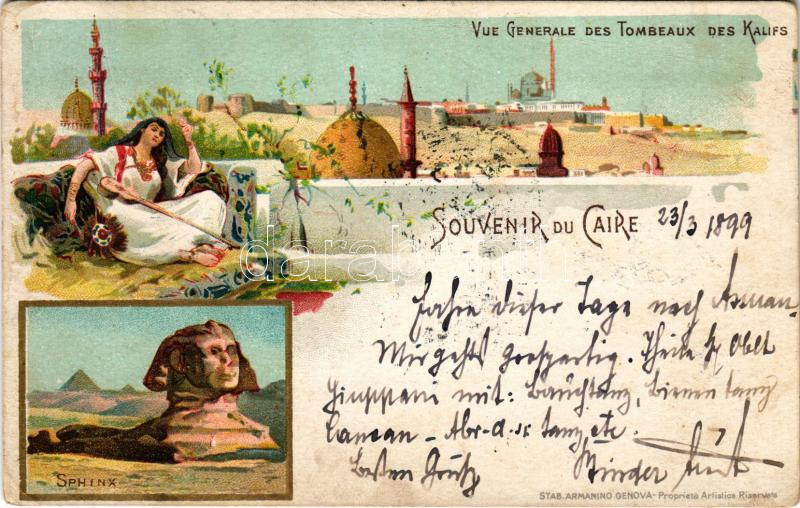 VUE GENERALE DES TOMBEAUX DES KALIFS
SOUVENIR DU CAIRE 23/3 1899
darabanth.com
Fahre dieser Tage nach Assuan.
Mir gehts großartig. Theile Oblt
mit: Bauchtanz, Bienentanz
Cancan - tanz etc.
Besten Gruß
SPHINX
STAB. ARMANINO GENOVA - Proprietà Artistica Riservata